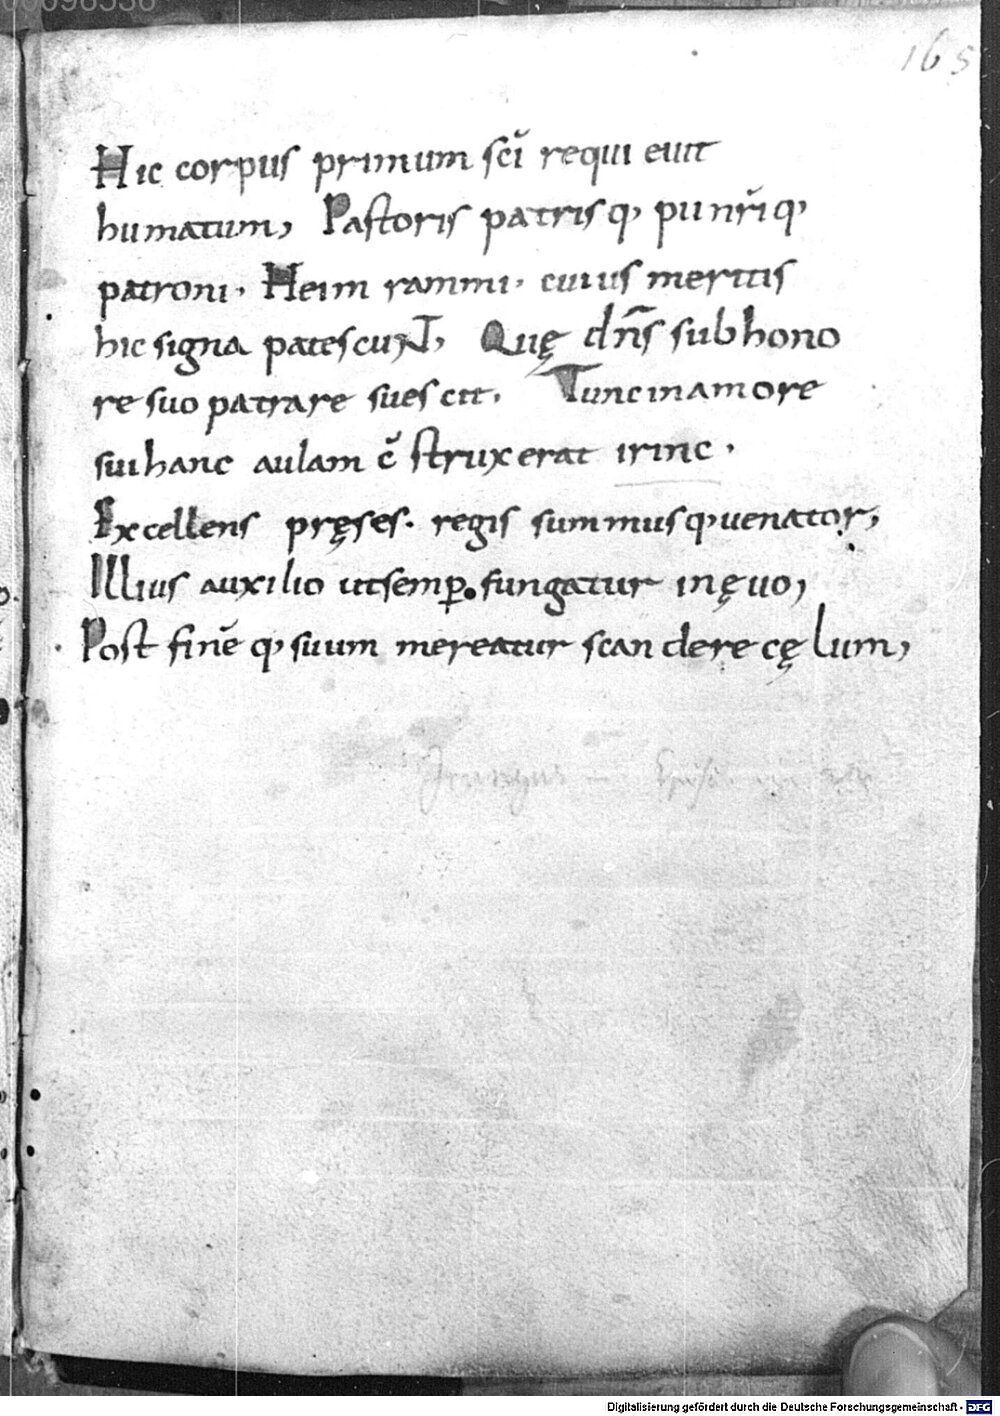 165
Hic corpus primum sc̄i requi evit
humatum, Pastoris patrisq, pu nr̄iq,
patroni. Heim rammi. cuius meritis
hic signa patescunt, Quę dn̄s sub hono
re suo patrare suescit. Tunc in amore
sui hanc aulam c̄ struxerat irinc.
Excellens pręses. regis summusq, uenator,
Illius auxilio ut semp̱. fungatur in ęuo,
Post finē q, suum mereatur scandere cęlum,
Digitalisierung gefördert durch die Deutsche Forschungsgemeinschaft - DFG